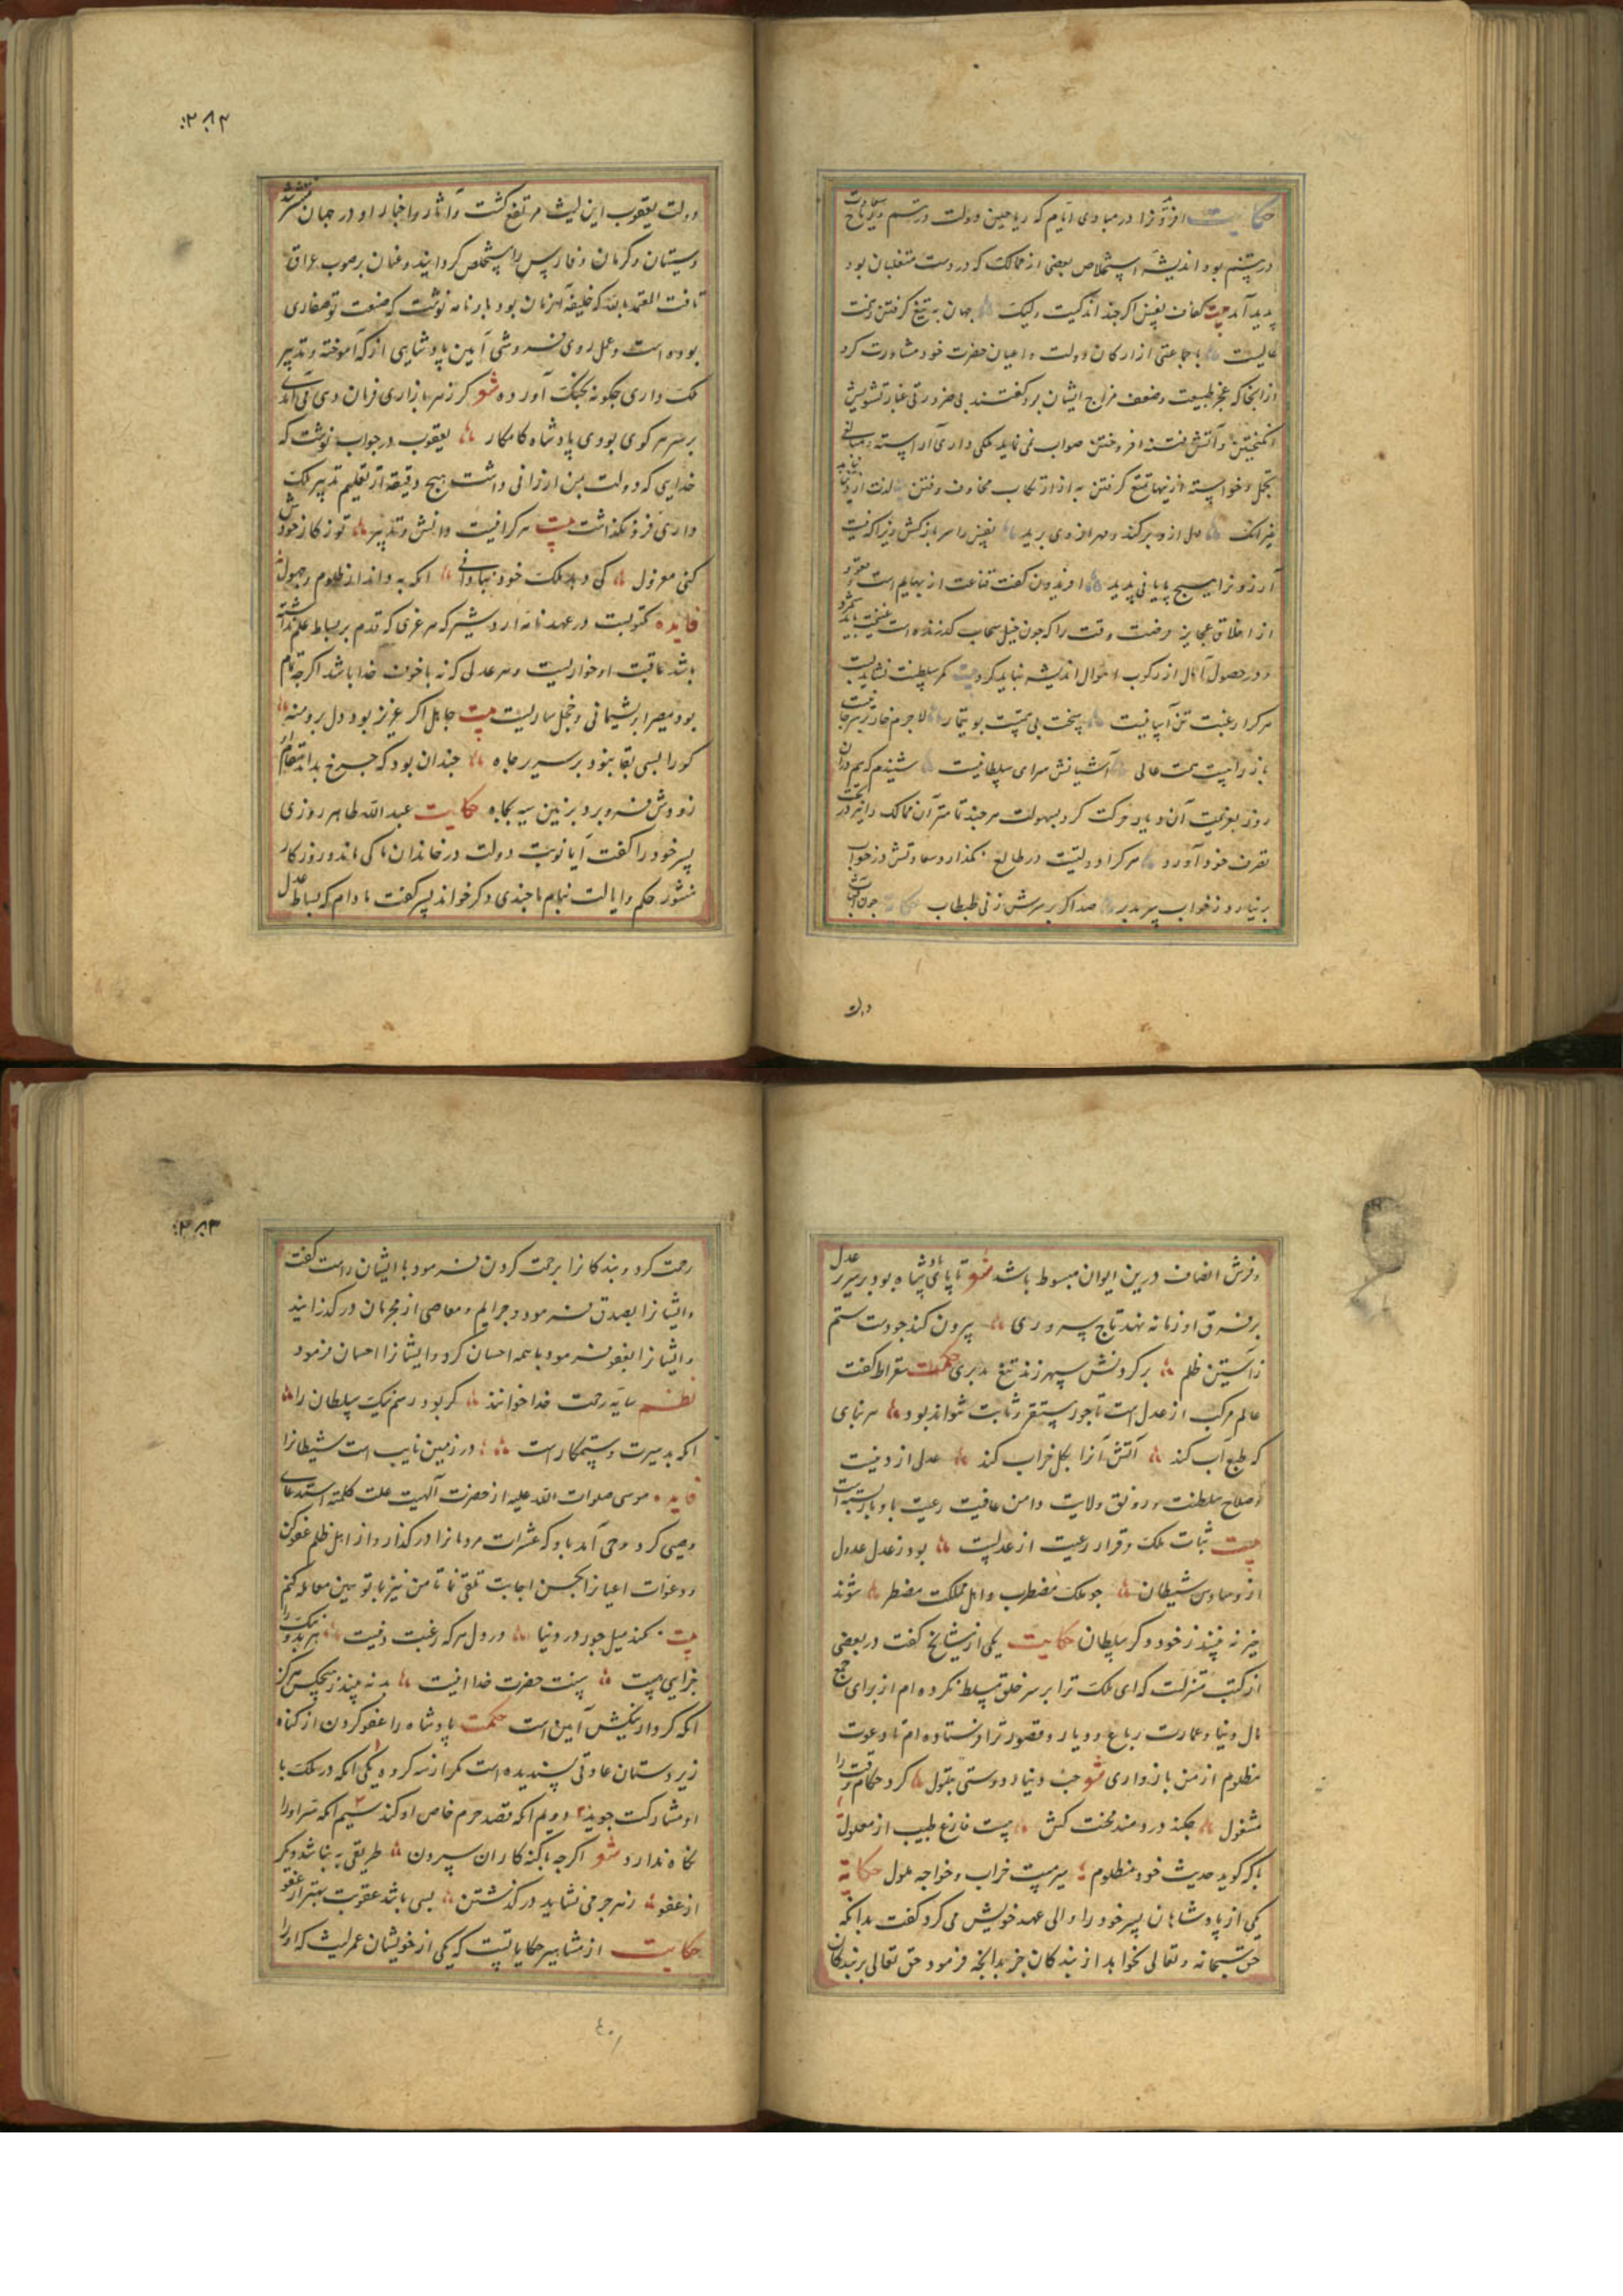 حکایت افریدونرا در مبادی ایام که ریاحین دولت در تبسم و ریاح سعادت
در تنسم بود اندیشه استخلاص بعضی از ممالک که در دست متغلبان بود
پدید آمد بیت کفاف نفس اگر چند اندکیست ولیک جهان به تیغ گرفتن ز همت
عالیست با جماعتی از ارکان دولت و اعیان حضرت خود مشاورت کرد
از آنجا که عجز طبیعت و ضعف مزاج ایشان بود گفتند بی ضرورتی غبار تشویش
انگیختن و آتش فتنه افروختن صواب نمی نماید ملکی داری آراسته
تجمل و خواسته ازینها تمتع گرفتن به از ارتکاب مخاوف و فتن
غیر آنک دل ازو برکند و مهر از وی برید نفس را سر باز کش زیرا که نیست
آرزو را هیچ پایانی پدید افریدون گفت قناعت از بهایم است
از اخلاق عجایز فرصت وقت را که چون خیل سحاب گذرنده است غنیمت باید شمرد
و در حصول آمال از رکوب اهوال اندیشه نباید کرد بیت کمر سلطنت نشاید بست
هر کرا رغبت تن آسانیست لاجرم خار
باز را نیست همت عالی آشیانش سرای سلطانیست شنیدم که هم دران
روز بعزیمت آن دیار حرکت کرد بسهولت هر چند تمامتر آن ممالک را در تحت
تصرف خود آورد هر کرا دولتیست در طالع نگذارد سعادتش در خواب
بر نیارد ز خواب سر صد اگر بر سرش زنی طبطاب حکایت چون آفتاب
دولت
٢٨٢
دولت یعقوب ابن لیث مرتفع گشت و آثار و اخبار او در جهان منتشر شد
و سیستان و کرمان و فارس را مستخلص گردانید و عنان بر صوب عراق
تافت المعتمد بالله که خلیفه آنزمان بود با او نامه نوشت که صنعت تو صفاری
بوده است و عمل روی فروشی آیین پادشاهی از که آموخته و تدبیر
ملک داری چگونه بچنگ آورده شعر گر ز هر بازاری فرمان دهی آمدی
بر سر هر کوی بودی پادشاه کامکار یعقوب در جواب نوشت که
خدایی که دولت بمن ارزانی داشت هیچ دقیقه از تعلیم تدبیر ملک
داری فرو نگذاشت بیت هر کرا نیست دانش و تدبیر تو ز کار خودش
کنی معزول کی دهد ملک خود بنادانی آنکه به داند از ظلوم و جهول
فایده مکتوبست در عهدنامه اردشیر که هر عزی که قدم بر بساط علم نداشته
باشد عاقبت او خواریست و هر عدلی که نه با خوف خدا باشد اگر چه تمام
بود مصیر او پشیمانی و خجل ساریست بیت جاهل اگر عزیز بود دل برو منه
کو را بسی بقا بنود بر سریر جاه چندان بود که چرخ بداند مقام او
زودش فرو برد بزمین سیه بچاه حکایت عبد الله طاهر روزی
پسر خود را گفت آیا نوبت دولت در خاندان ما کی ماند و روزگار
منشور حکم و ایالت بنام ما چندی دگر خواند پسر گفت مادام که بساط عدل
و فرش انصاف درین ایوان مبسوط باشد شعر تا پای پادشاه بود بر سریر عدل
بر فرق او زمانه نهد تاج سروری بیرون کند چو دست ستم
ز آستین ظلم بر گردنش سپهر زند تیغ مدبری حکمت سقراط گفت
عالم مرکب از عدل است تا جور مستقر و ثابت نتواند بود هر بنای
که طبع آب کند آتش آنرا بکل خراب کند عدل از دنیست
و صلاح سلطنت و رونق ولایت و امن عاقبت رعیت باو باز بسته است
بیت ثبات ملک و قرار رعیت از عدلست بود ز عدل عدول
از وساوس شیطان چو ملک مضطرب و اهل مملکت مضطر شوند
خیر نه بیند ز خود و گر سلطان حکایت یکی از مشایخ گفت در بعضی
از کتب منزلست که ای ملک ترا بر سر خلق مسلط نکرده ام از برای جمع
مال دنیا و عمارت رباع و دیار و قصور ترا فرستاده ام تا دعوت
مظلوم از من باز داری شعر حب دنیا و دوستی بتول کرد حکام وقت را
مشغول چکند دردمند محنت کش هست فارغ طبیب از معلول
با که گوید حدیث خود مظلوم میر مست خراب و خواجه ملول حکایة
یکی از پادشاهان پسر خود را والی عهد خویش می کرد گفت بدانکه
حق سبحانه و تعالی نخواهد از بندگان جز بدانچه فرمود حق تعالی بر بندکان
٢٨٣
رحمت کرد و بندکانرا برحمت کردن فرمود با ایشان راست گفت
و ایشانرا بصدق فرمود و جرایم و معاصی از مجرمان در گذرانید
و ایشانرا بعفو فرمود با همه احسان کرد و ایشانرا احسان فرمود
نظم سایه رحمت خدا خوانند گر بود رسم نیک سلطان را
آنکه بد سیرت و ستمکار است در زمین نایب است شیطانرا
فایده موسی صلوات الله علیه از حضرت آلهیت علت کلمته استدعای
وصیی کرد وحی آمد باو که عثرات مردمانرا در گذار و از اهل ظلم عفو کن
و دعوات اعیانرا بحسن اجابت تلقی نما تا من نیز با تو همین معامله کنم
بیت نکند میل جور در دنیا در دل هر که رغبت دنیست هر بد و نیک را
جزایی هست سنت حضرت خدا اینست بد نه بیند ز هیچکس هرگز
آنکه کردار نیکش آیین است حکمت پادشاه را عفو کردن از گناه
زیر دستان عادتی پسندیده است مگر از سه گروه یکی آنکه در ملک با
او مشارکت جوید دویم آنکه قصد حرم خاص او کند سیم آنکه سر او را
نگاه ندارد شعر اگر چه با گنه کاران بیرون طریقی به نباشد دیگر
از عفو زهر جرمی نشاید در گذشتن بسی باشد عقوبت بهتر از عفو
حکایت از مشاهیر حکایاتست که یکی از خویشان عمر لیث که او را